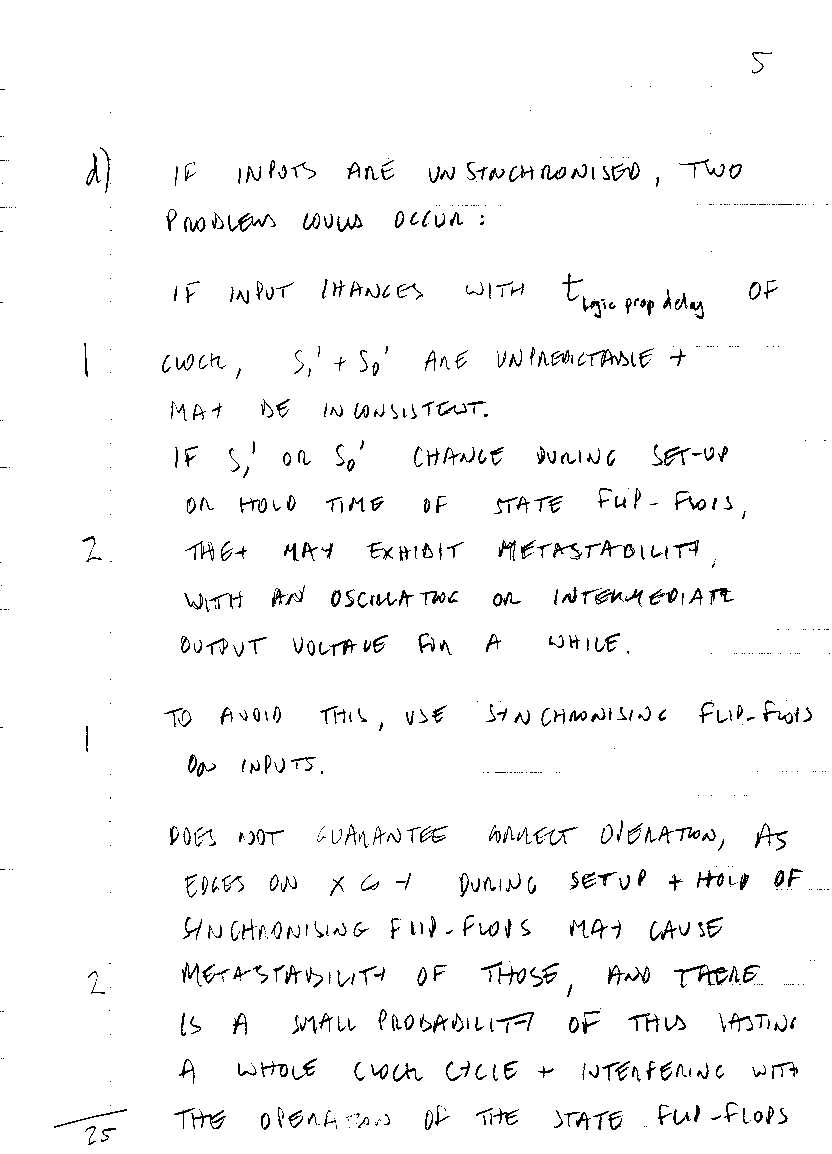 5
d) IF INPUTS ARE UNSYNCHRONISED, TWO
PROBLEMS COULD OCCUR :
IF INPUT CHANGES WITH t logic prop delay OF
1 CLOCK, S₁' + S₀' ARE UNPREDICTABLE +
MAY BE INCONSISTENT.
IF S₁' OR S₀' CHANGE DURING SET-UP
OR HOLD TIME OF STATE FLIP-FLOPS,
2 THEY MAY EXHIBIT METASTABILITY,
WITH AN OSCILLATING OR INTERMEDIATE
OUTPUT VOLTAGE FOR A WHILE.
TO AVOID THIS, USE SYNCHRONISING FLIP-FLOPS
1 ON INPUTS.
DOES NOT GUARANTEE CORRECT OPERATION, AS
EDGES ON X G Y DURING SETUP + HOLD OF
SYNCHRONISING FLIP-FLOPS MAY CAUSE
2 METASTABILITY OF THOSE, AND THERE
IS A SMALL PROBABILITY OF THIS LASTING
A WHOLE CLOCK CYCLE + INTERFERING WITH
THE OPERATION OF THE STATE FLIP-FLOPS
25